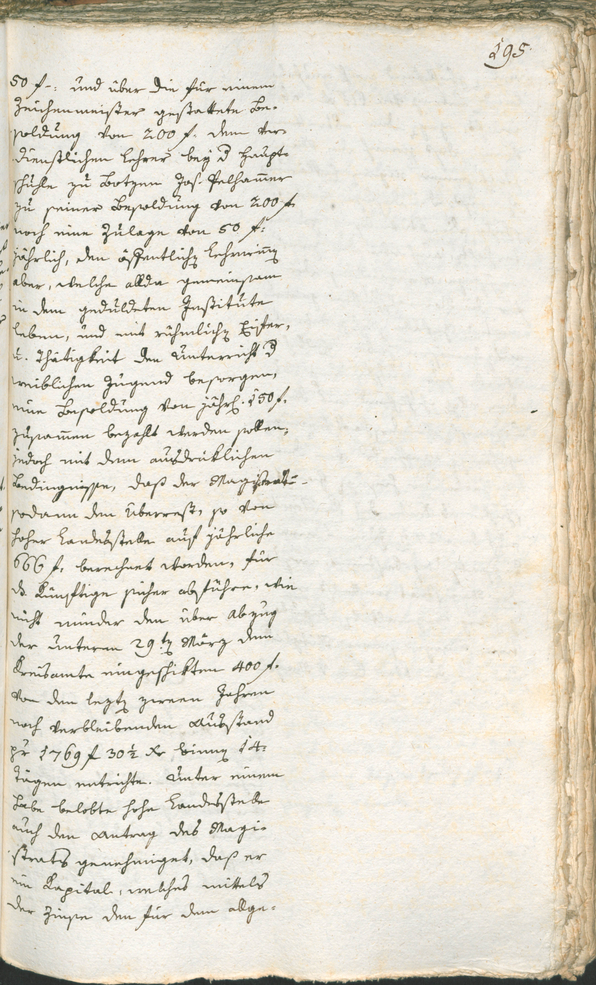 195.
50 f-: und über die für einem
Zeichenmeister gestattete Be-
soldung von 200 f. dem ver-
dienstlichen Lehrer bey d Haupt-
schule zu Botzen Jos. Pelhamer
zu seiner Besoldung von 200 f.
noch eine Zulage von 50 f:
jährlich, den öffentlichen Lehrerinen
aber, welche allda gemeinsam
in dem geduldeten Institute
leben, und mit rühmlichen Eifer,
u. Thätigkeit den Unterricht d
weiblichen Jugend besorgen,
eine Besoldung von jährl. 150 f.
zusammen bezahlt werden sollen,
jedoch mit dem ausdrüklichen
Bedingnisse, daß der Magistrat
sodann den Überrest, so von
hoher Landesstelle auf jährliche
666 f. berechnet worden, für
das Künftige sicher abführe, wie
nicht minder den über Abzug
der unterm 29ten März dem
Kreisamte eingeschikten 400 f.
von den lezten zween Jahren
noch verbleibenden Ausstand
pr 1769 f 30½ Xr binnen 14.
Tägen entrichte. Unter einem
habe belobte hohe Landesstelle
auch den Antrag des Magi-
strats genehmiget, daß er
ein Kapital, welches mittels
der Zinse den für dem abge-